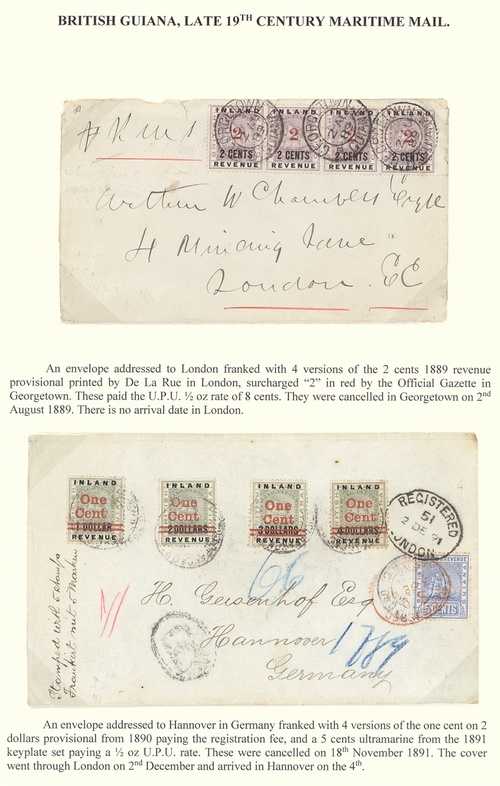 BRITISH GUIANA, LATE 19TH CENTURY MARITIME MAIL.
INLAND INLAND INLAND INLAND
2 2 2 2
2 CENTS 2 CENTS 2 CENTS 2 CENTS
REVENUE REVENUE REVENUE REVENUE
Arthur W Chambers Esqre
4 Mincing Lane
London. EC
An envelope addressed to London franked with 4 versions of the 2 cents 1889 revenue
provisional printed by De La Rue in London, surcharged “2” in red by the Official Gazette in
Georgetown. These paid the U.P.U. ½ oz rate of 8 cents. They were cancelled in Georgetown on 2nd
August 1889. There is no arrival date in London.
INLAND INLAND INLAND INLAND
One One One One
Cent Cent Cent Cent
1 DOLLAR 2 DOLLARS 3 DOLLARS 4 DOLLARS
REVENUE REVENUE REVENUE REVENUE
REGISTERED
51
2 DE 91
LONDON
5 CENTS
Stamped with 5 stamps
Frankirt mit 5 Marken
66
H. Geisenhof Esq
Hannover
Germany
An envelope addressed to Hannover in Germany franked with 4 versions of the one cent on 2
dollars provisional from 1890 paying the registration fee, and a 5 cents ultramarine from the 1891
keyplate set paying a ½ oz U.P.U. rate. These were cancelled on 18th November 1891. The cover
went through London on 2nd December and arrived in Hannover on the 4th.